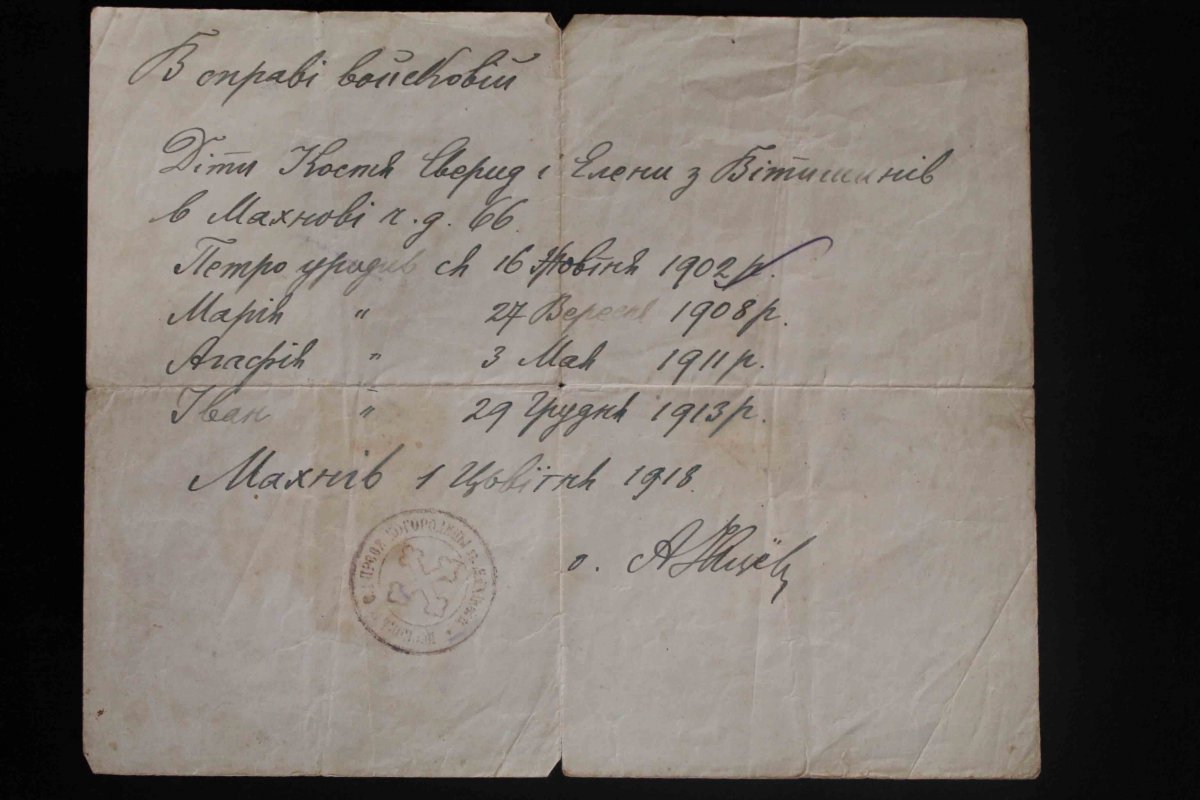 В справі войсковій
Діти Костя Сверид і Елени з Вітишинів
в Махнові ч. д. 66
Петро уродив ся 16 Цьвітня 1902 р.
Марія " 27 Вересня 1908 р.
Агафія " 3 Мая 1911 р.
Іван " 29 Грудня 1913 р.
Махнів 1 Цьвітня 1918
о. А
БОГОРОДИЦЫ